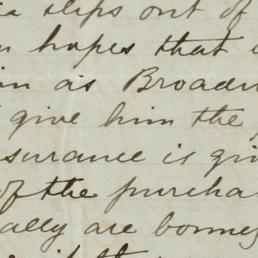 slips out of
hopes that
in as Broad
give him the
surance is gi
of the purcha
ally are